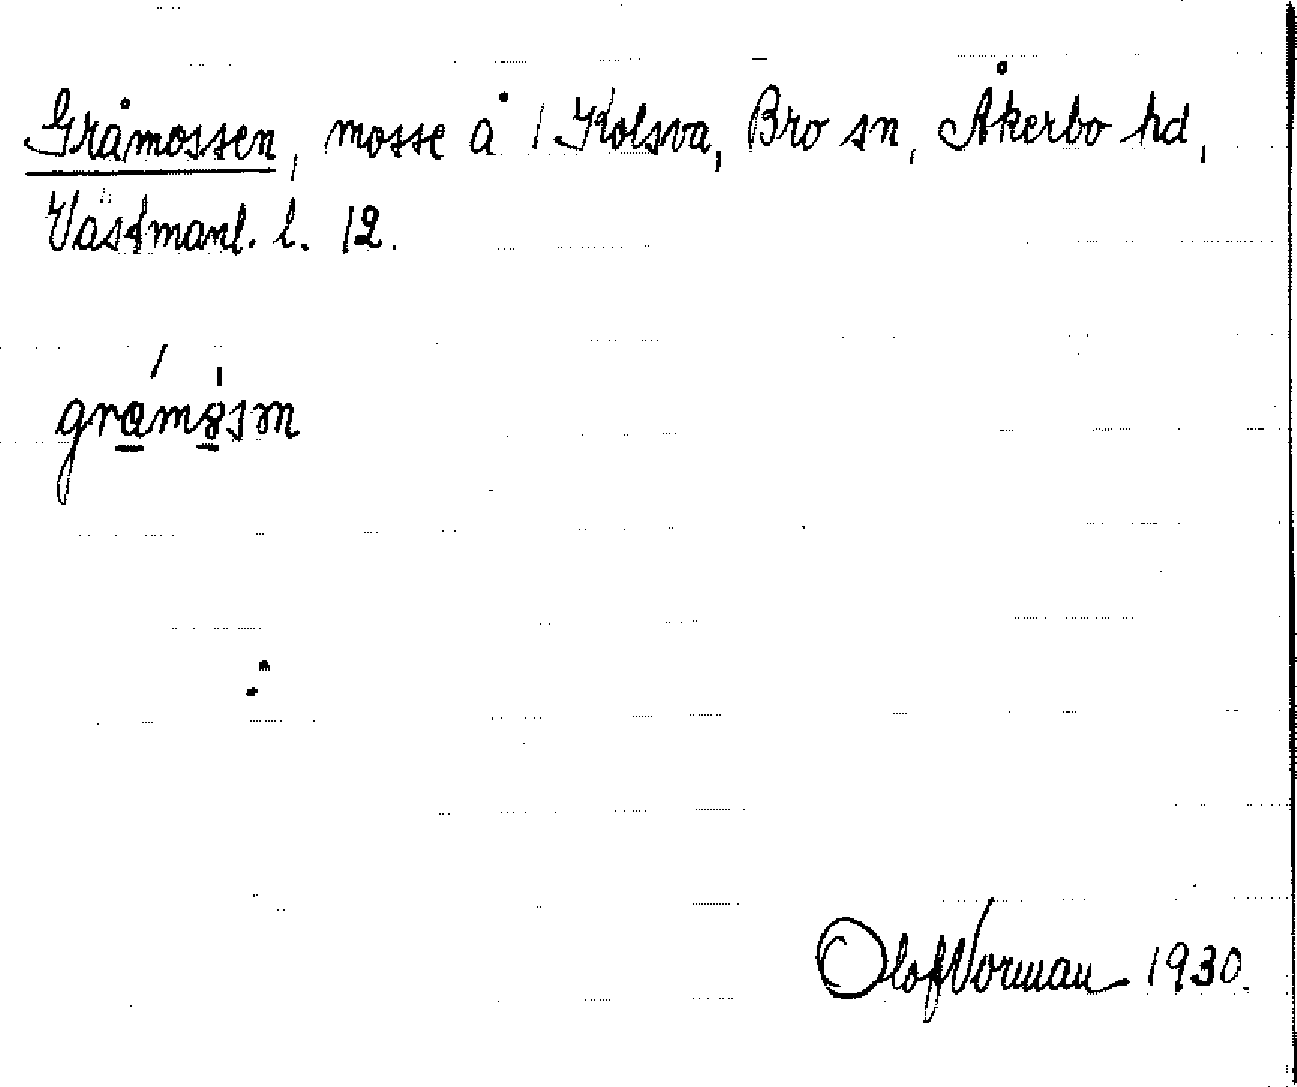 Gråmossen, mosse å 1 Kolsva, Bro sn, Åkerbo hd,
Västmanl. l. 12.
Olof Norman 1930.